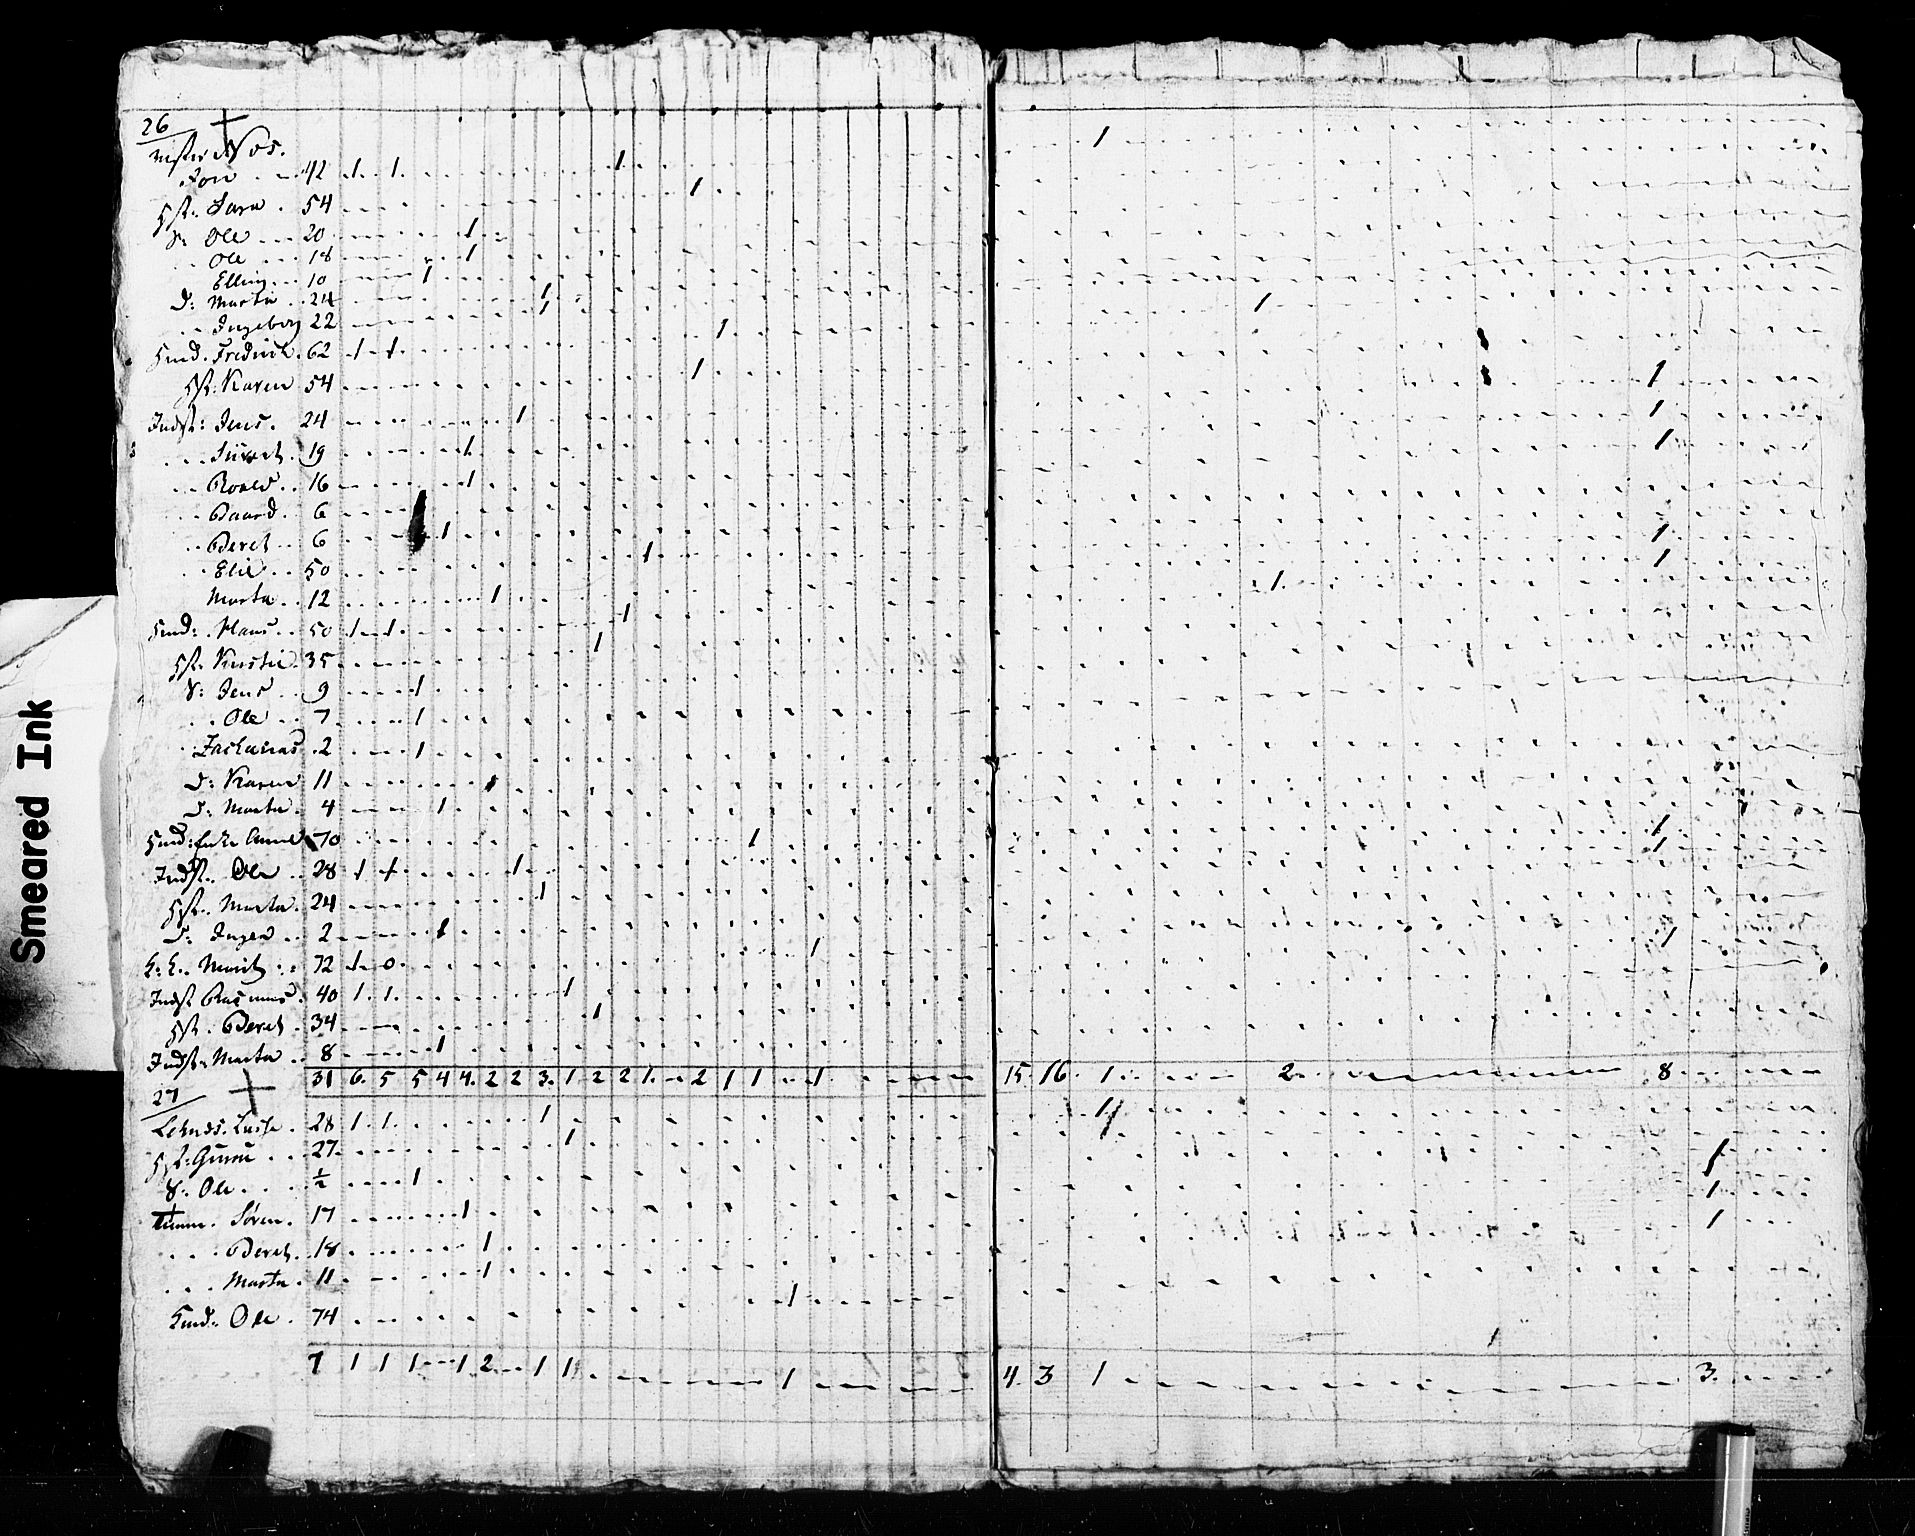 Smeared Ink
26
Nos.
42 1 1 1 1
Hst. Sara 54 1
S: Ole 20 1
Ole 18 1
Elling 10 1
D: Marta 24 1
Ingeborg 22 1 1
Husd. Fredrich 62 1 1 1
Hst. Karen 54 1 1
Indst: Jens 24 1 1
Siwert 19 1 1
Roald 16 1
Baard 6
Beret 6 1 1
Elie 50 1 1
Marta 12 1 1
Husd: Hans 50 1 1 1
Hst. Kirstie 35 1
S: Jens 9 1
Ole 7 1
Zacharias 2 1
D: Karen 11
D: Marta 4 1
Husd: Enke Anne 70 1 1
Indst. Ole 28 1 1 1 1
Hst. Marta 24 1
D: Inger 2 1
Marit 72 1 0 1 1
Indst Rasmus 40 1 1 1
Hst. Beret 34 1
Indst. Marta 8 1
31 6 5 5 4 4 2 2 3 1 2 2 1 2 1 1 1 15 16 1 2 8
27
28 1 1 1 1
Hst: Guru 27 1 1
S: Ole ½ 1 1
Søren 17 1 1
Beret 18 1
Marta 11 1
Ole 74 1
7 1 1 1 1 2 1 1 1 4 3 1 3